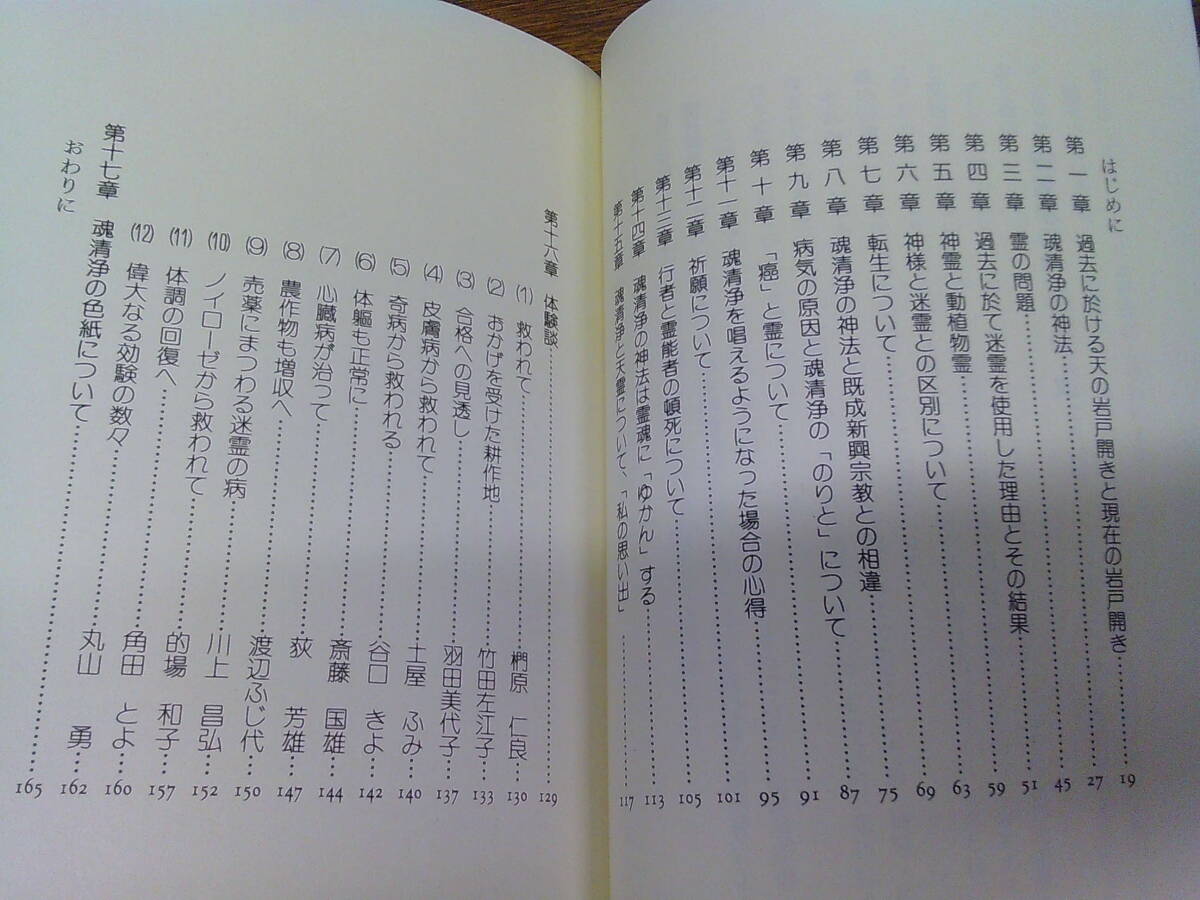 はじめに
第一章 過去に於ける天の岩戸開きと現在の岩戸開き……19
第二章 魂清浄の神法……27
第三章 霊の問題……45
第四章 過去に於て迷霊を使用した理由とその結果……51
第五章 神霊と動植物霊……59
第六章 神様と迷霊との区別について……63
第七章 転生について……69
第八章 魂清浄の神法と既成新興宗教との相違……75
第九章 病気の原因と魂清浄の「のりと」について……87
第十章 「癌」と霊について……91
第十一章 魂清浄を唱えるようになった場合の心得……95
第十二章 祈願について……101
第十三章 行者と霊能者の頓死について……105
第十四章 魂清浄の神法は霊魂に「ゆかん」する……113
第十五章 魂清浄と天霊について、「私の思い出」……117
第十六章 体験談……129
(1) 救われて……椚原 仁良……130
(2) おかげを受けた耕作地……竹田左江子……133
(3) 合格への見透し……羽田美代子……137
(4) 皮膚病から救われて……土屋 ふみ……140
(5) 奇病から救われる……谷口 きよ……142
(6) 体軀も正常に……斎藤 国雄……144
(7) 心臓病が治って……荻 芳雄……147
(8) 農作物も増収へ……渡辺ふじ代……150
(9) 売薬にまつわる迷霊の病……川上 昌弘……152
(10) ノイローゼから救われて……的場 和子……157
(11) 体調の回復へ……角田 とよ……160
(12) 偉大なる効験の数々……丸山 勇……162
第十七章 魂清浄の色紙について……165
おわりに